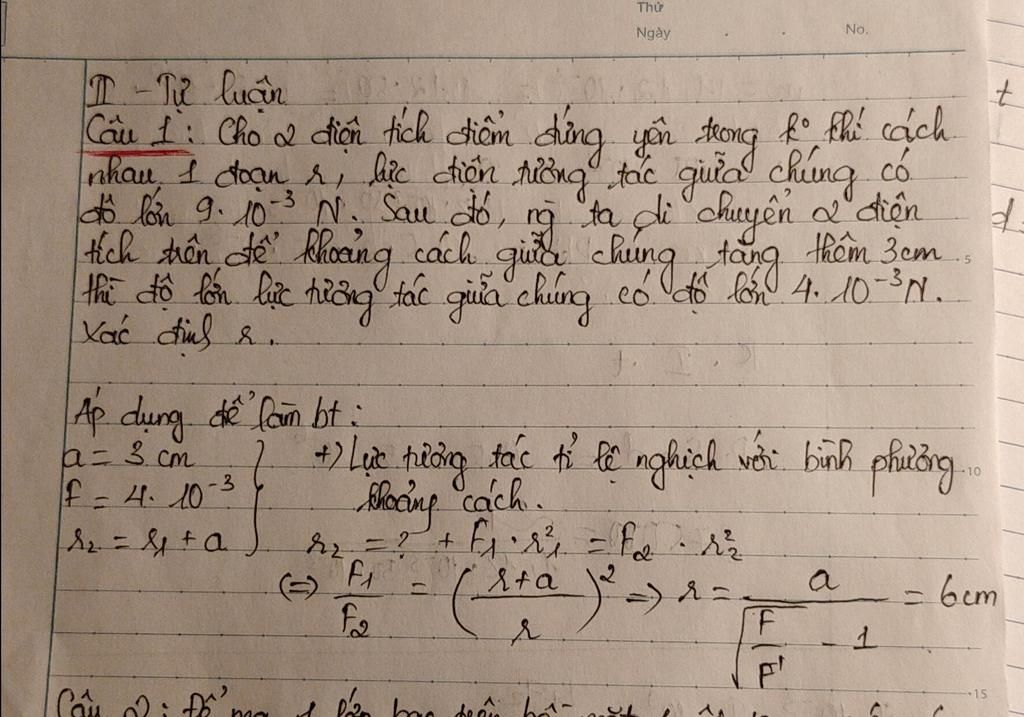 Thứ
Ngày . . No.
II - Tự luận
Câu 1: Cho 2 điện tích điểm đứng yên trong k° khí cách
nhau 1 đoạn r, lực điện tương tác giữa chúng có
độ lớn 9.10⁻³ N. Sau đó, ng ta di chuyển 2 điện
tích trên để khoảng cách giữa chúng tăng thêm 3cm
thì độ lớn lực tương tác giữa chúng có độ lớn 4.10⁻³N.
Xác định r.
Áp dụng để làm bt:
a = 3 cm +) Lực tương tác tỉ lệ nghịch với bình phương
F = 4.10⁻³ khoảng cách.
r₂ = r₁ + a } r₂ = ? + F₁.r₁² = F₂.r₂²
(=) F₁/F₂ = ((r+a)/r)² => r = a/(√(F/F') - 1) = 6cm
t
d
5
10
15